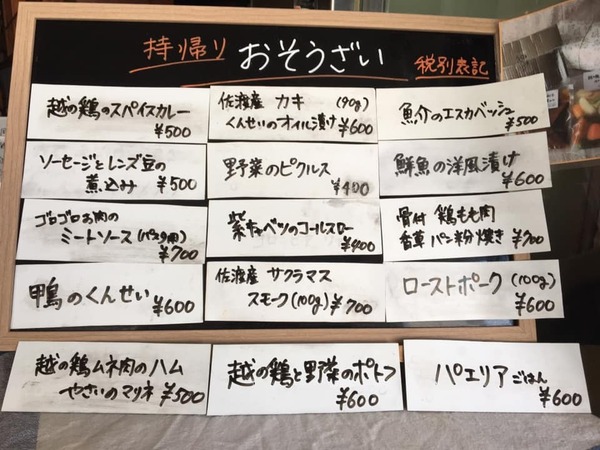 持帰り おそうざい 税別表記
越の鶏のスパイスカレー
¥500
佐渡産 カキ (90g)
くんせいのオイル漬け ¥600
魚介のエスカベッシュ
¥500
ソーセージとレンズ豆の
煮込み ¥500
野菜のピクルス
¥400
鮮魚の洋風漬け
¥600
ゴロゴロお肉の
ミートソース (パスタ用)
¥700
紫キャベツのコールスロー
¥400
骨付 鶏もも肉
香草パン粉焼き ¥700
鴨のくんせい ¥600
佐渡産 サクラマス
スモーク (100g) ¥700
ローストポーク (100g)
¥600
越の鶏ムネ肉のハム
やさいのマリネ ¥500
越の鶏と野菜のポトフ
¥600
パエリアごはん
¥600